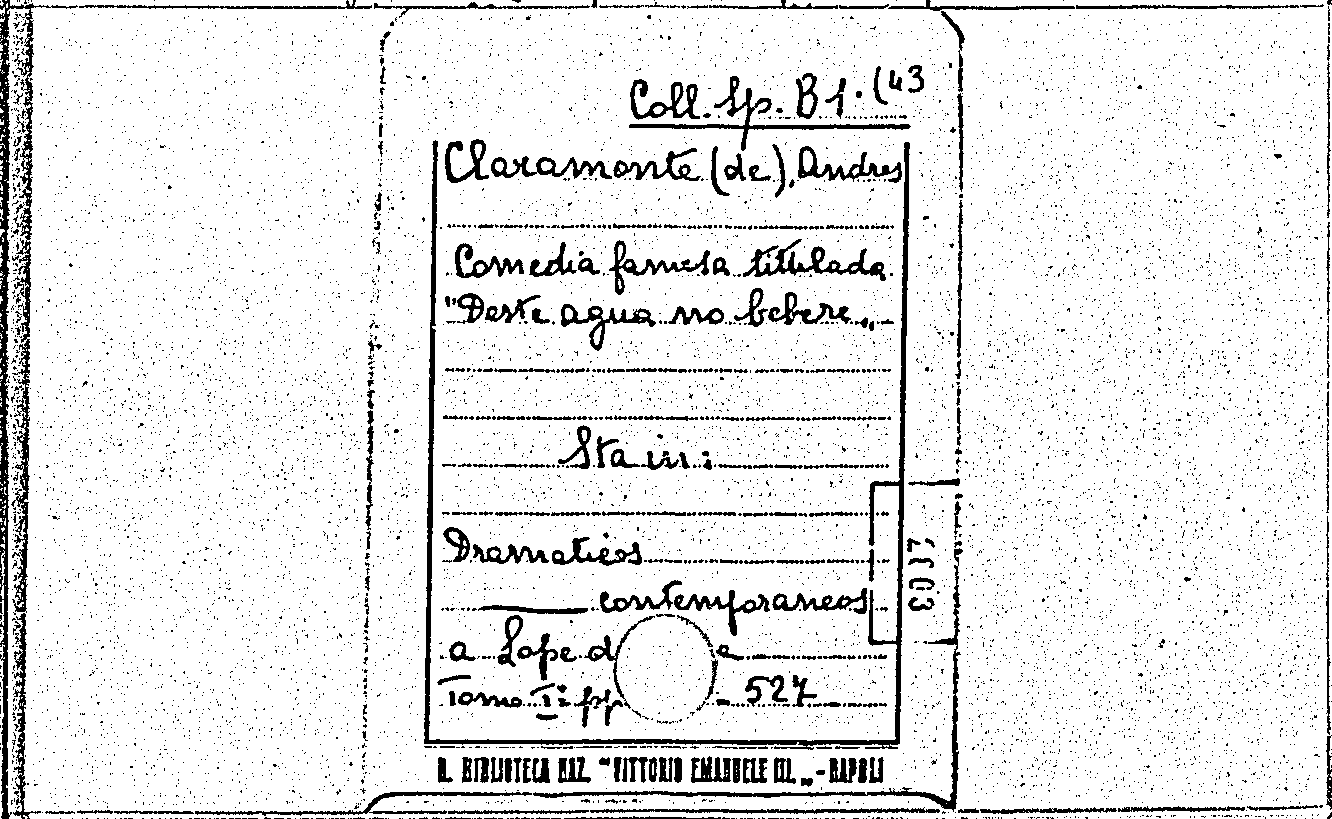 Coll. Sp. B 1. (43
Claramonte (de), Andres
Comedia famosa titulada
"Deste agua no bebere„
Sta in:
Dramaticos
contemporaneos
a Lope d e
Tomo I: pp - 527
R. BIBLIOTECA NAZ. "VITTORIO EMANUELE III.„ - NAPOLI